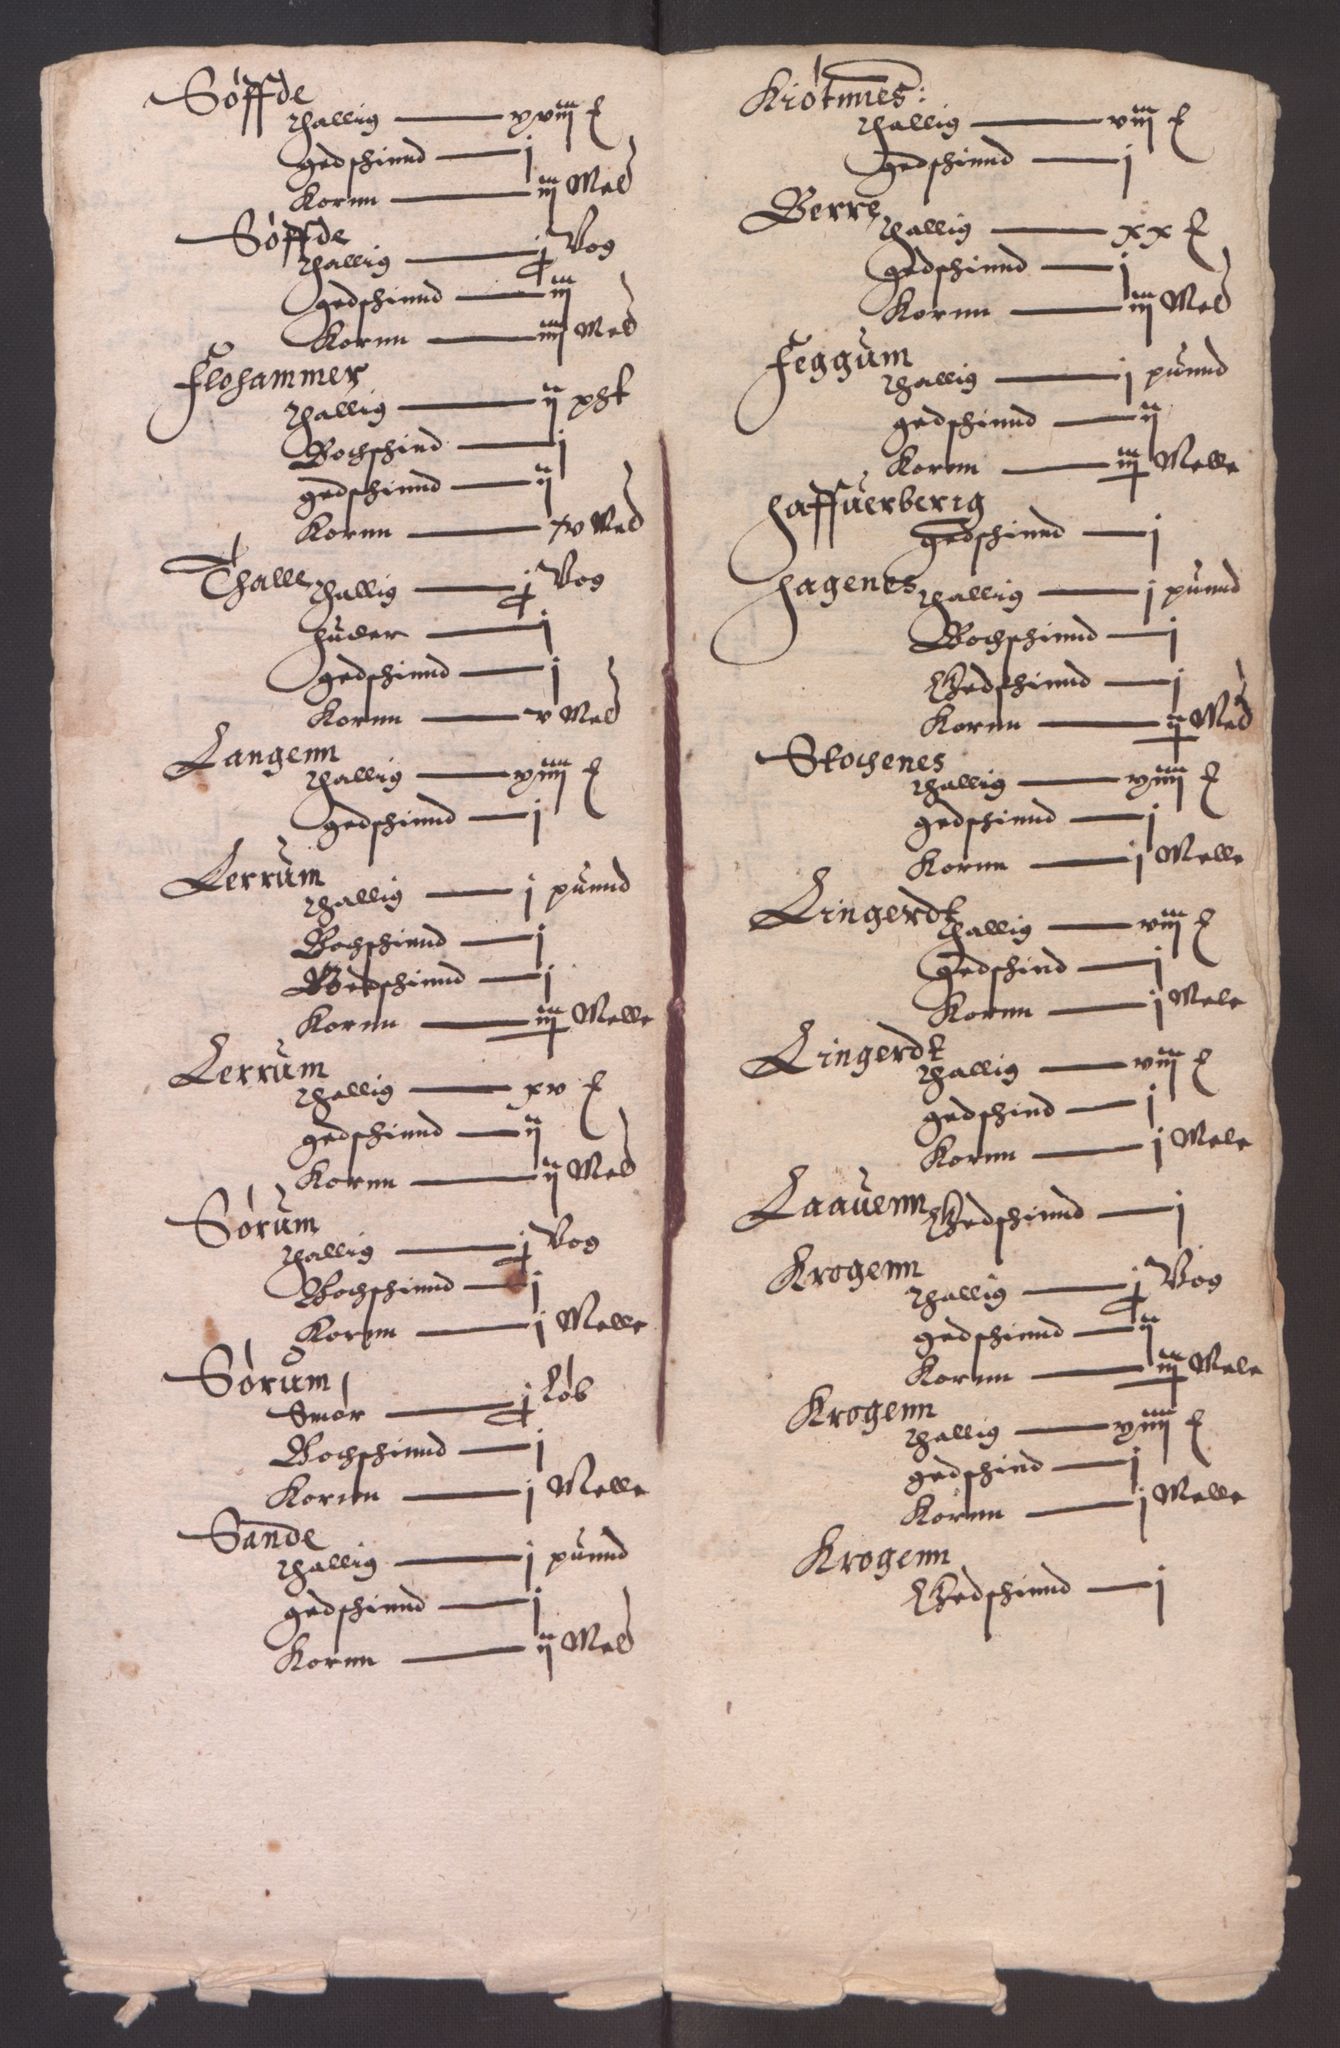 Søffde
Thallig — xviij
gedschinnd — j
Kornn — iij Meel
Søffde
Thallig — j Vog
gedschinnd — iij
Kornn — iiij Meel
Flohammer
Thallig — ij pht
Bochschind — j
gedschinnd — ij
Kornn — xv Meel
Thalle Thallig — j Vog
huder — j
gedschinnd — j
Kornn — v Meel
Langenn
Thallig — xiiij
gedschinnd — j
Lerrum
Thallig — j punnd
Bochschinnd — j
Gedschinnd — j
Kornn — iij Melle
Lerrum
Thallig — xv
gedschinnd — ij
Kornn — ij Meel
Sørum
Thallig — j Vog
Bochschinnd — j
Kornn — j Melle
Sørum
Smør — j Løb
Bochschinnd — j
Kornn — j Melle
Sande
Thallig — j punnd
gedschinnd — j
Kornn — ij Meel
Kiøtnnes:
Thallig — viij
gedschinnd — j
Berre Thallig — xx
gedschinnd — j
Kornn — iij Meel
Feggum
Thallig — j punnd
gedschinnd — ij
Kornn — iij Melle
haffuerberig
gedschinnd — j
hagenes Thallig — j punnd
Bochschinnd — j
Gedschinnd — j
Kornn — ij Meel
Stochenes
Thallig — xiiij
gedschinnd — j
Kornn — j Melle
Lingerdt
Thallig — viij
gedschind — j
Kornn — j Mele
Lingerdt
Thallig — viij
gedschind — j
Kornn — j Mele
Laauenn Gedschinnd — j
Krogenn
Thallig — j Vog
gedschinnd — ij
Kornn — iij Mele
Krogenn
Thallig — xiiij
gedschind — j
Kornn — j Melle
Krogenn
Gedschinnd — j